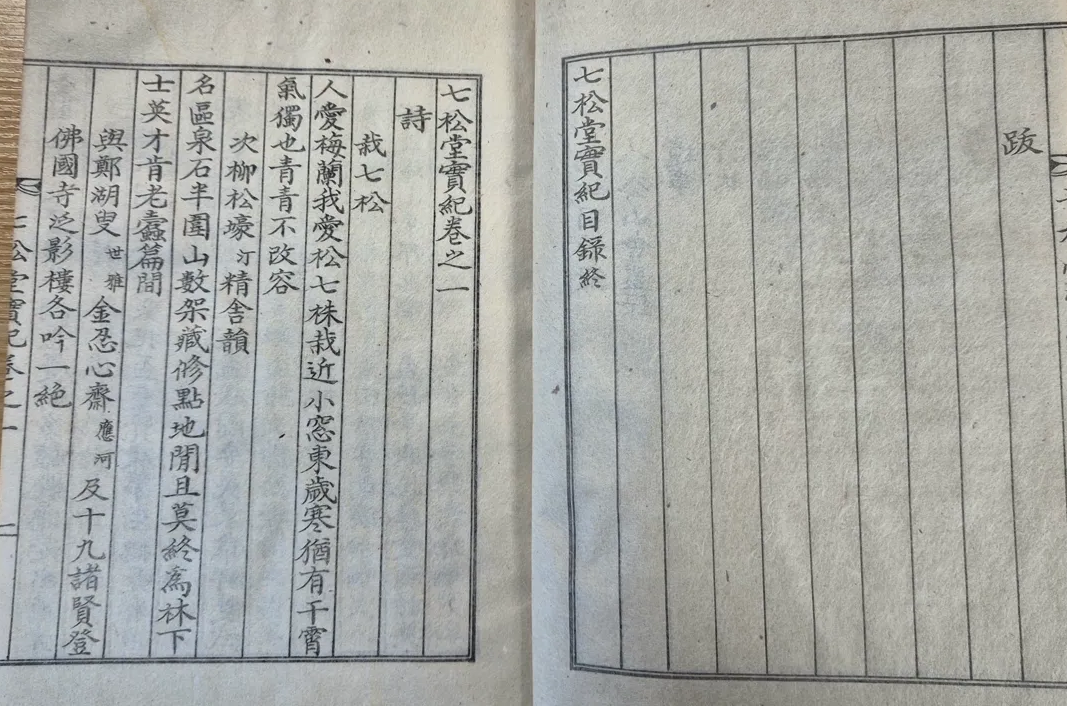 跋
七松堂實紀目錄終
七松堂實紀卷之一
詩
栽七松
人愛梅蘭我愛松七株栽近小窓東歲寒猶有干霄
氣獨也靑靑不改容
次柳松壕汀精舍韻
名區泉石半圍山數架藏修點地閒且莫終爲林下
士英才肯老蠹篇間
與鄭湖叟世雅金忍心齋應河及十九諸賢登
佛國寺泛影樓各吟一絶
七松堂實紀卷之一